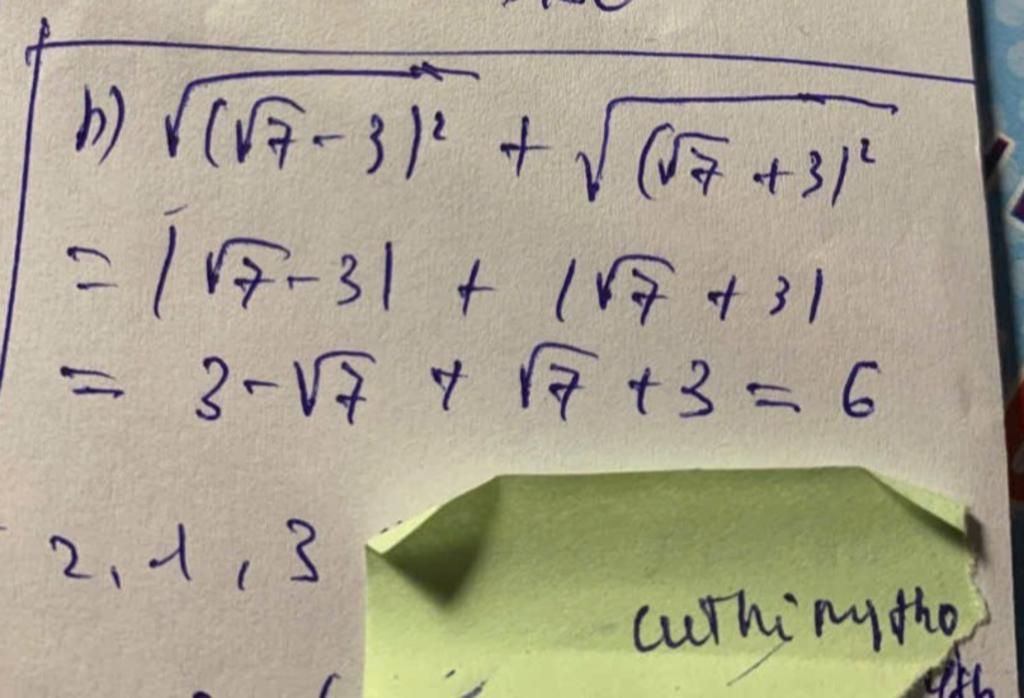 b) √(√7-3)² + √(√7+3)²
= |√7-3| + |√7+3|
= 3-√7 + √7+3 = 6
2, 1, 3
cuthimytho